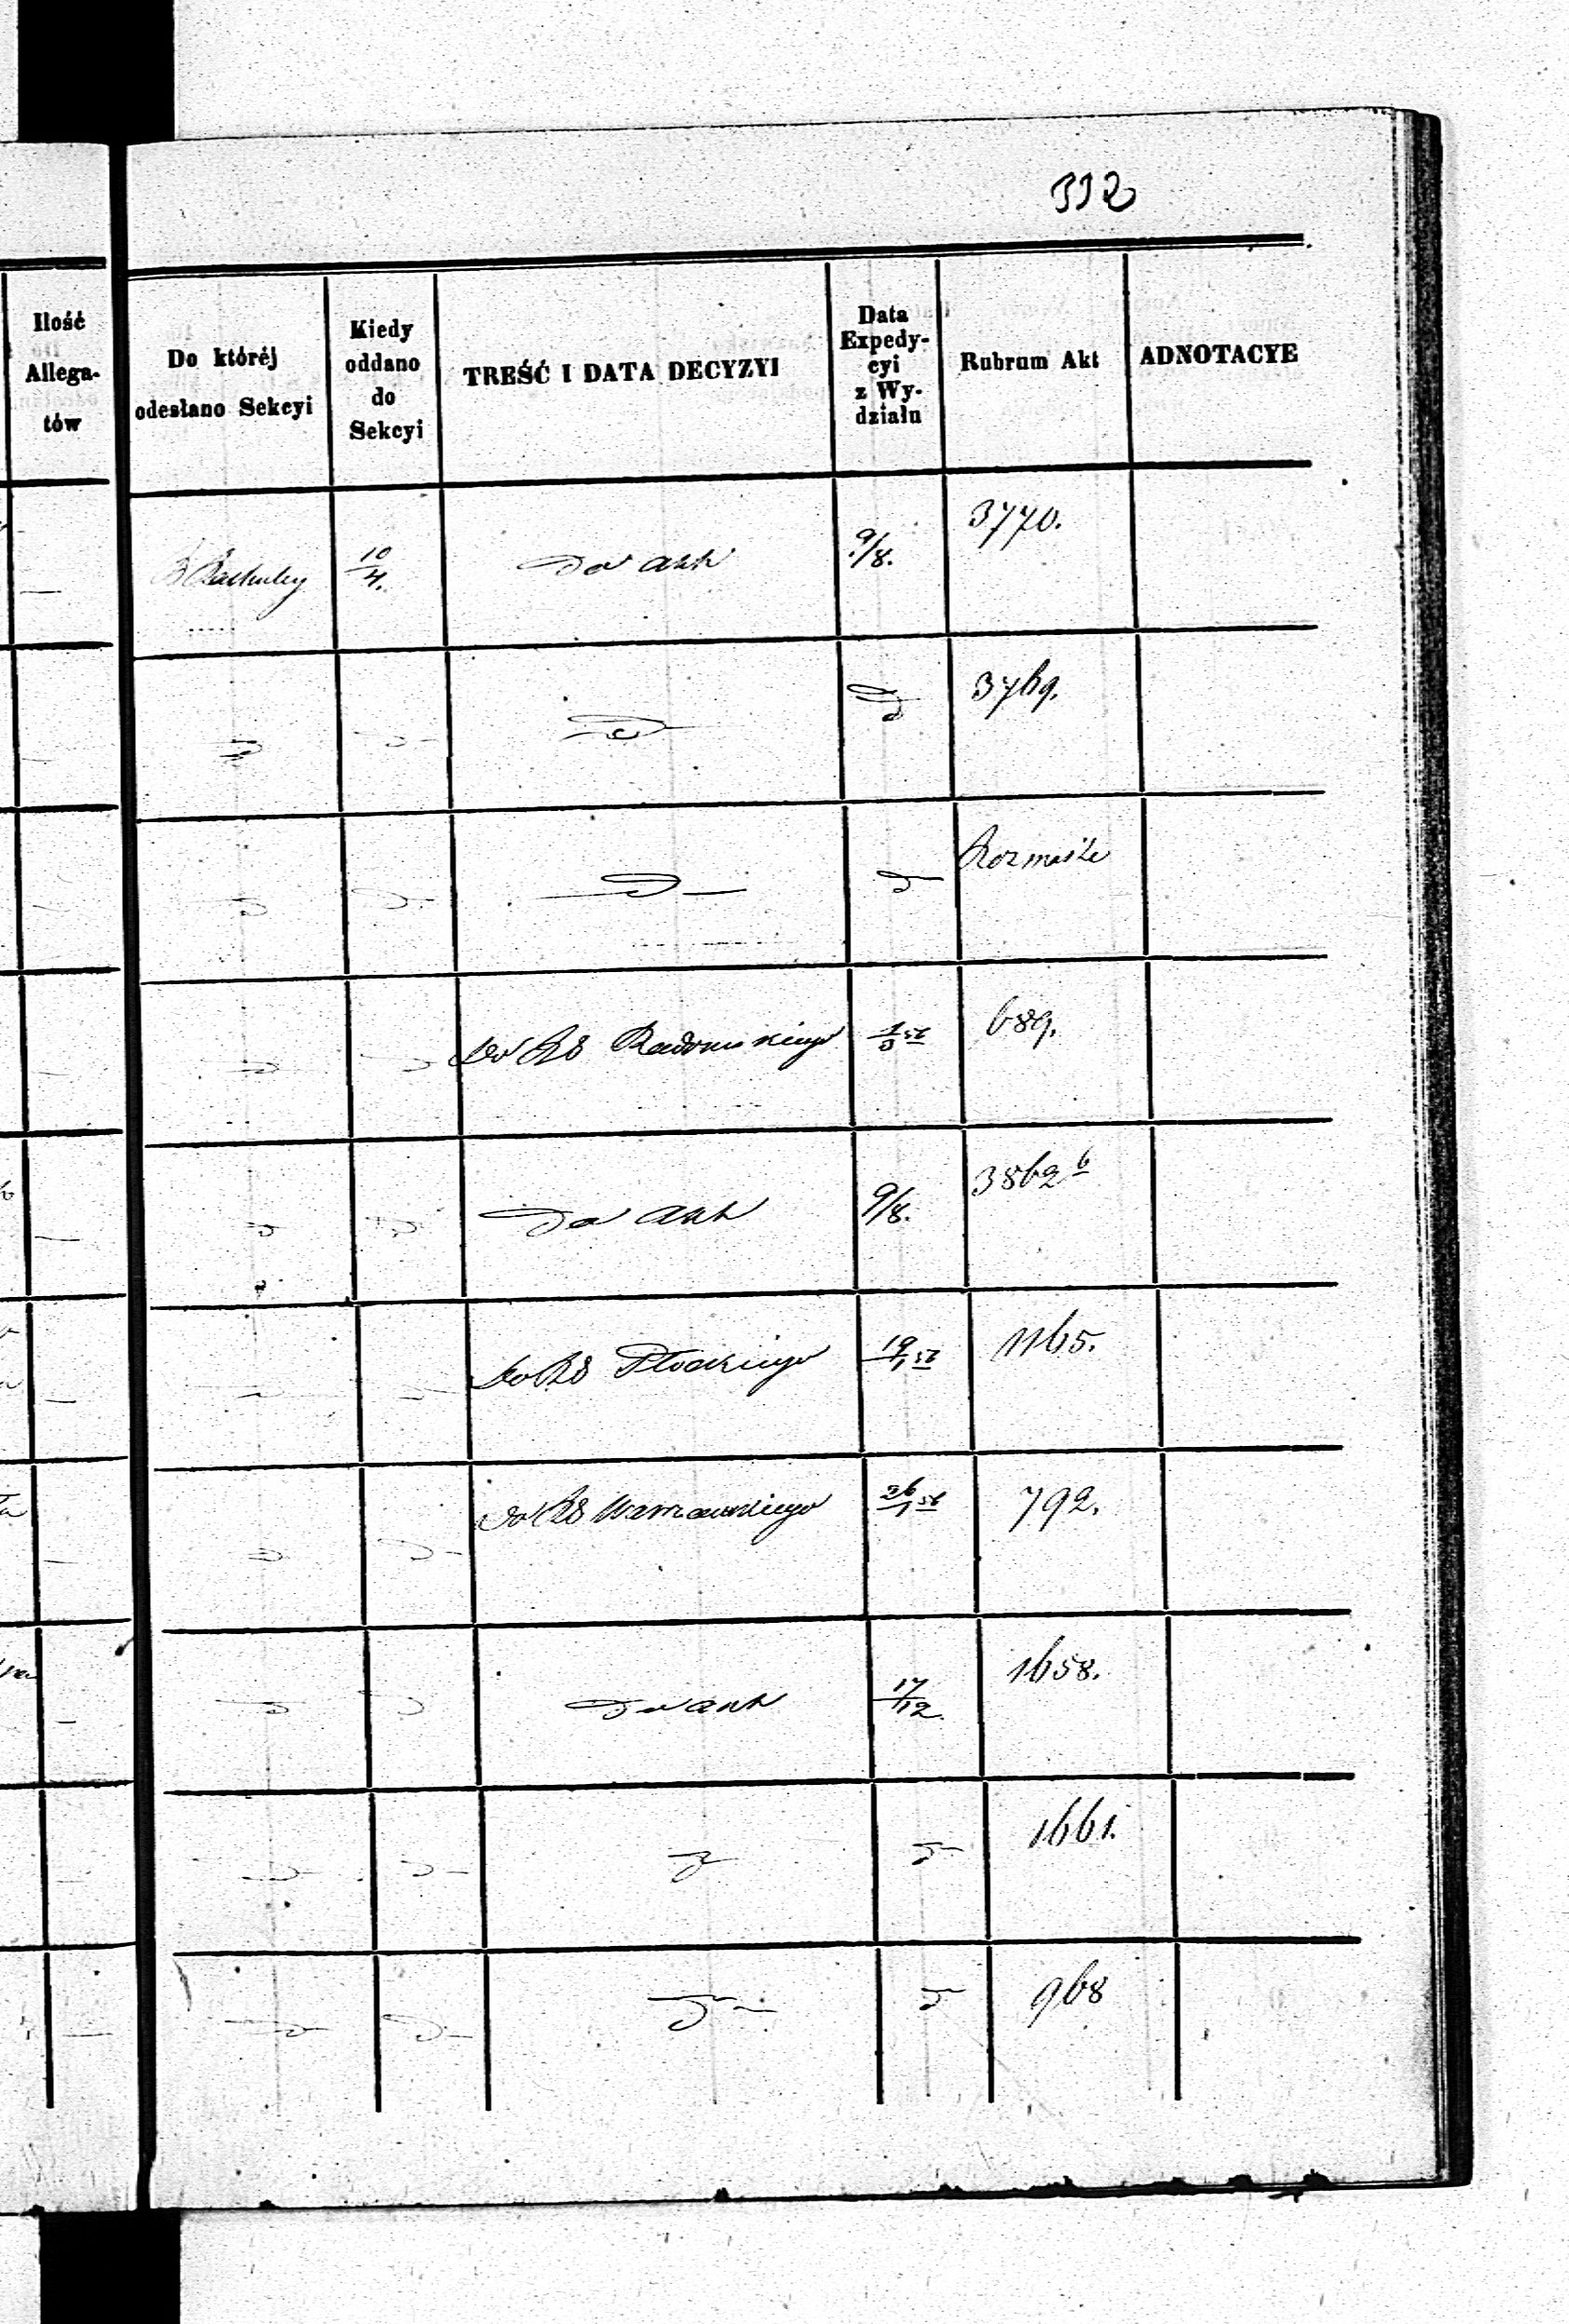 332
Ilość
Allega-
tów
Do któréj
odesłano Sekcyi
Kiedy
oddano
do
Sekcyi
TREŚĆ I DATA DECYZYI
Data
Expedy-
cyi
z Wy-
działu
Rubrum Akt
ADNOTACYE
10/4. Do akt 9/8. 3770.
3769.
689.
Do akt 9/8. 3862 b
Do RG Płockiego 19/1 56 1165.
Do RG Warszawskiego 26/1 56 792.
Do akt 17/12. 1658.
1661.
968